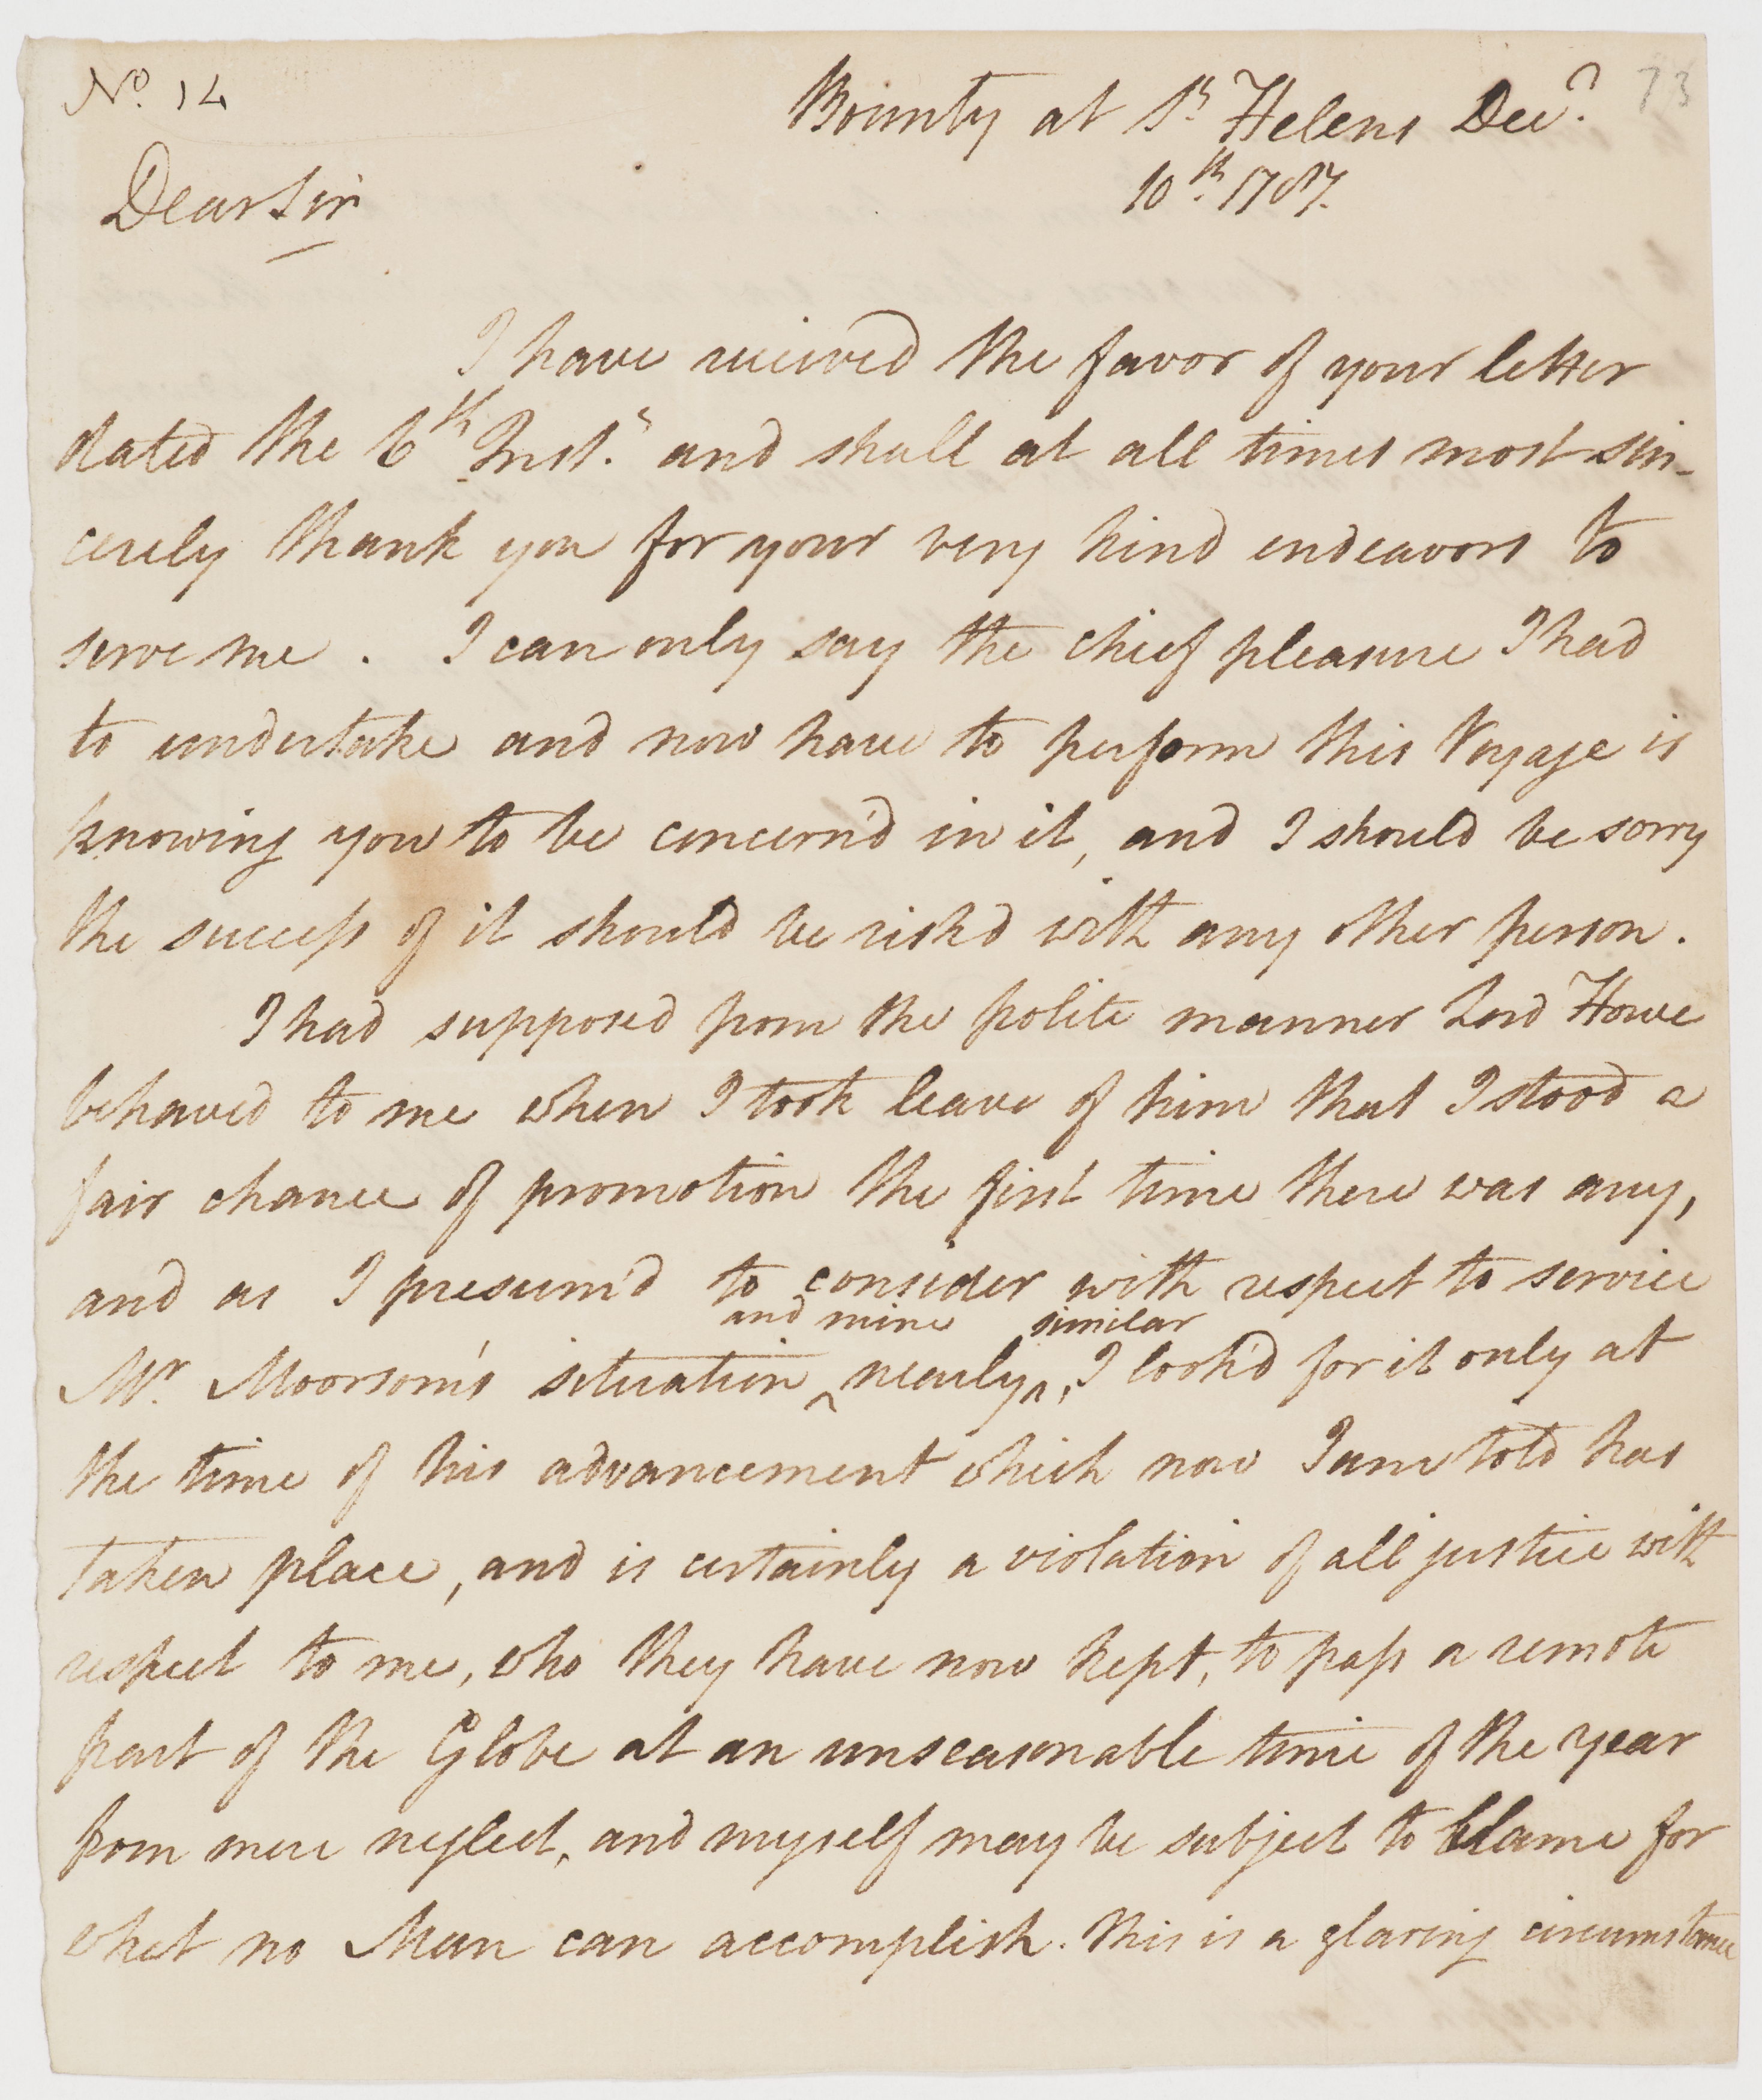 No. 14
73
Bounty at St. Helens Decr.
10th. 1787.
Dear Sir
I have recieved the favor of your letter
dated the 6th Inst. and shall at all times most sin-
cerely thank you for your very kind endeavors to
serve me . I can only say the chief pleasure I had
to undertake and now have to perform this Voyage is
knowing you to be concern'd in it, and I should be sorry
the success of it should be risk'd with any other person.
I had supposed from the polite manner Lord Howe
behaved to me when I took leave of him that I stood a
fair chance of promotion the first time there was any,
and as I presum'd to consider with respect to service
and mine similar
Mr. Moorsom's situation ^ nearly ^, I look'd for it only at
the time of his advancement which now I am told has
taken place, and is certainly a violation of all justice with
respect to me, who they have now kept, to pass a remote
part of the Globe at an unseasonable time of the year
from mere neglect, and myself may be subject to blame for
what no Man can accomplish. This is a glaring circumstance